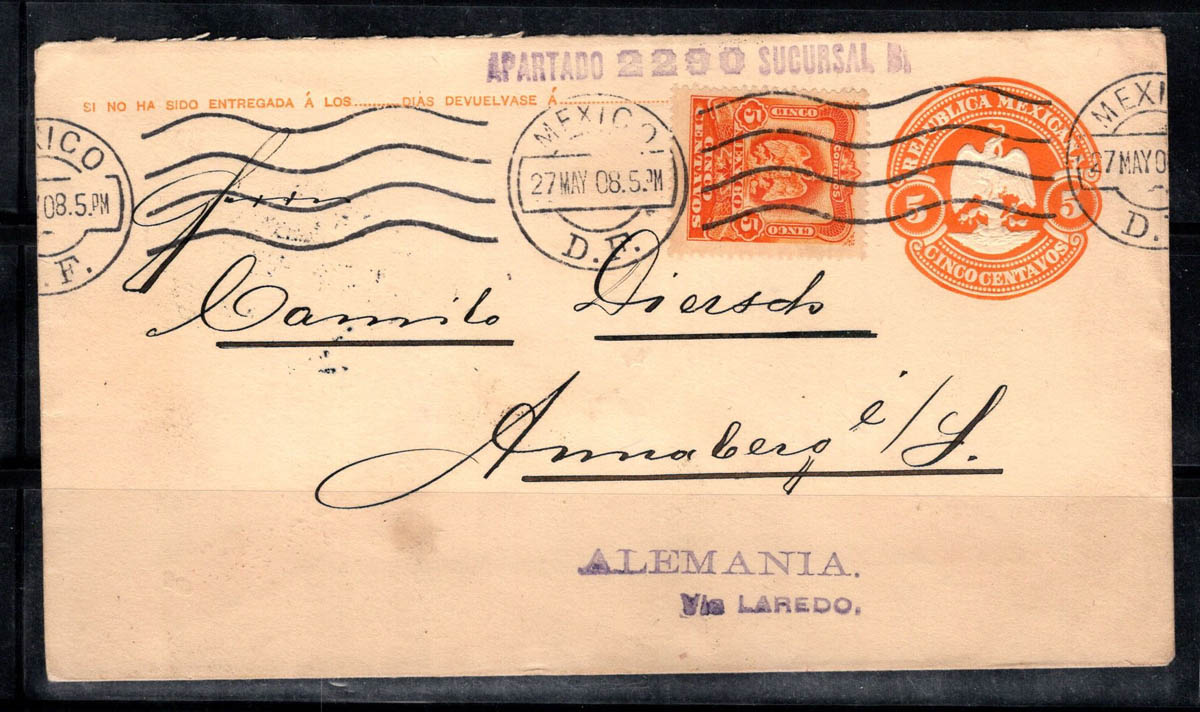 APARTADO 2290 SUCURSAL B.
SI NO HA SIDO ENTREGADA Á LOS..........DIAS DEVUELVASE Á..........
XICO
08.5.PM
.F.
MEXICO
27 MAY 08.5.PM
D.F.
CINCO
5
CORREOS
MEXICO
CINCO
CENTAVOS
5
CINCO
REPUBLICA MEXICANA
5
5
CINCO CENTAVOS
MEXI
27 MAY 0
D.
Camilo Diersch
Annaberg i/S.
ALEMANIA.
Via LAREDO.